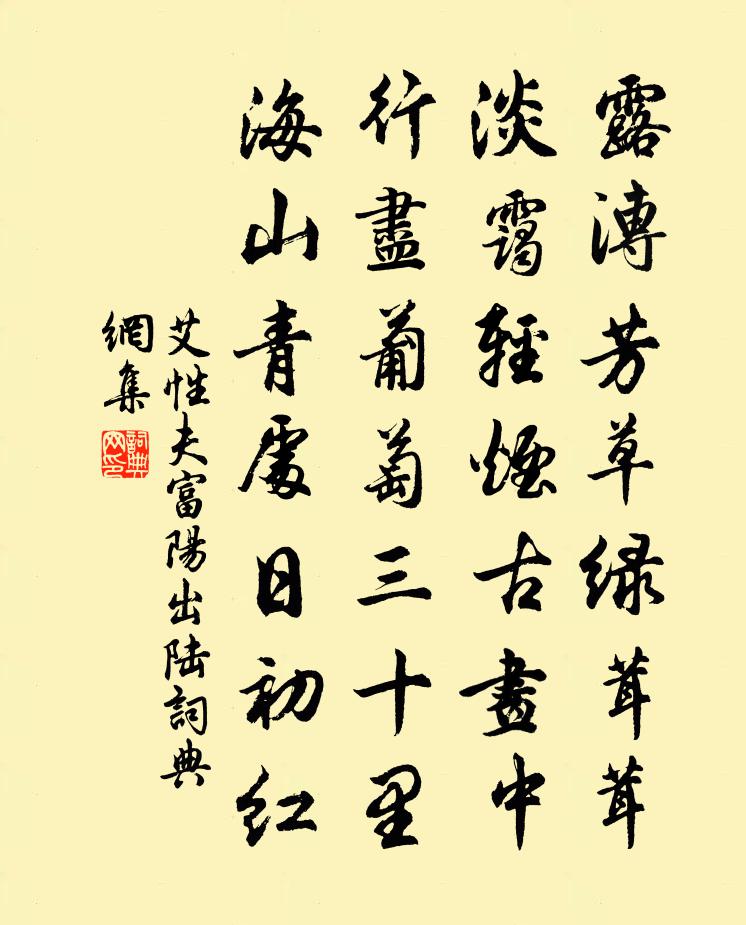 露漙芳草綠茸茸
淡靄輕煙古畫中
行盡葡萄三十里
海山青處日初紅
艾性夫富陽出陆詞典
網集
詞典網印